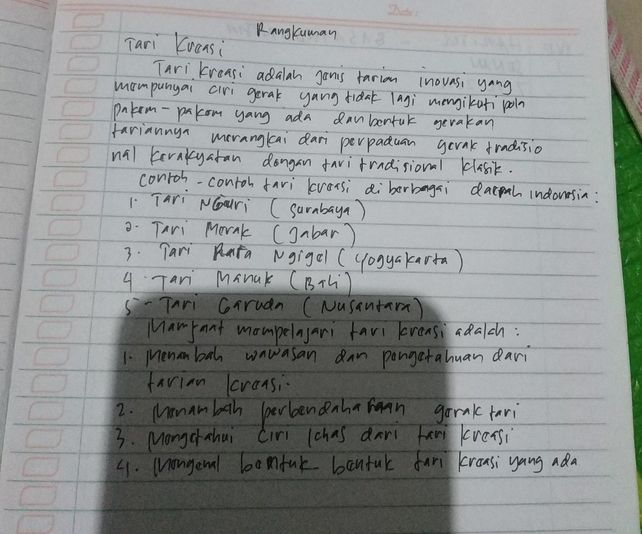 Rangkuman
Tari Kreasi
Tari kreasi adalah jenis tarian inovasi yang
mempunyai ciri gerak yang tidak lagi mengikuti pola
pakem-pakem yang ada dan bentuk gerakan
tariannya merangkai dari perpaduan gerak tradisio
nal kerakyatan dengan tari tradisional klasik.
Contoh-contoh tari kreasi di berbagai daerah indonesia:
1. Tari NGuri (Surabaya)
2. Tari Merak (Jabar)
3. Tari Rara Ngigel (Yogyakarta)
4. Tari Manuk (Bali)
5. Tari Garuda (Nusantara)
Manfaat mempelajari tari kreasi adalah:
1. Menambah wawasan dan pengetahuan dari
tarian kreasi.
2. Menambah perbendaharaan gerak tari
3. Mengetahui ciri khas dari tari kreasi
4. Mengenal bemtuk bentuk tari kreasi yang ada